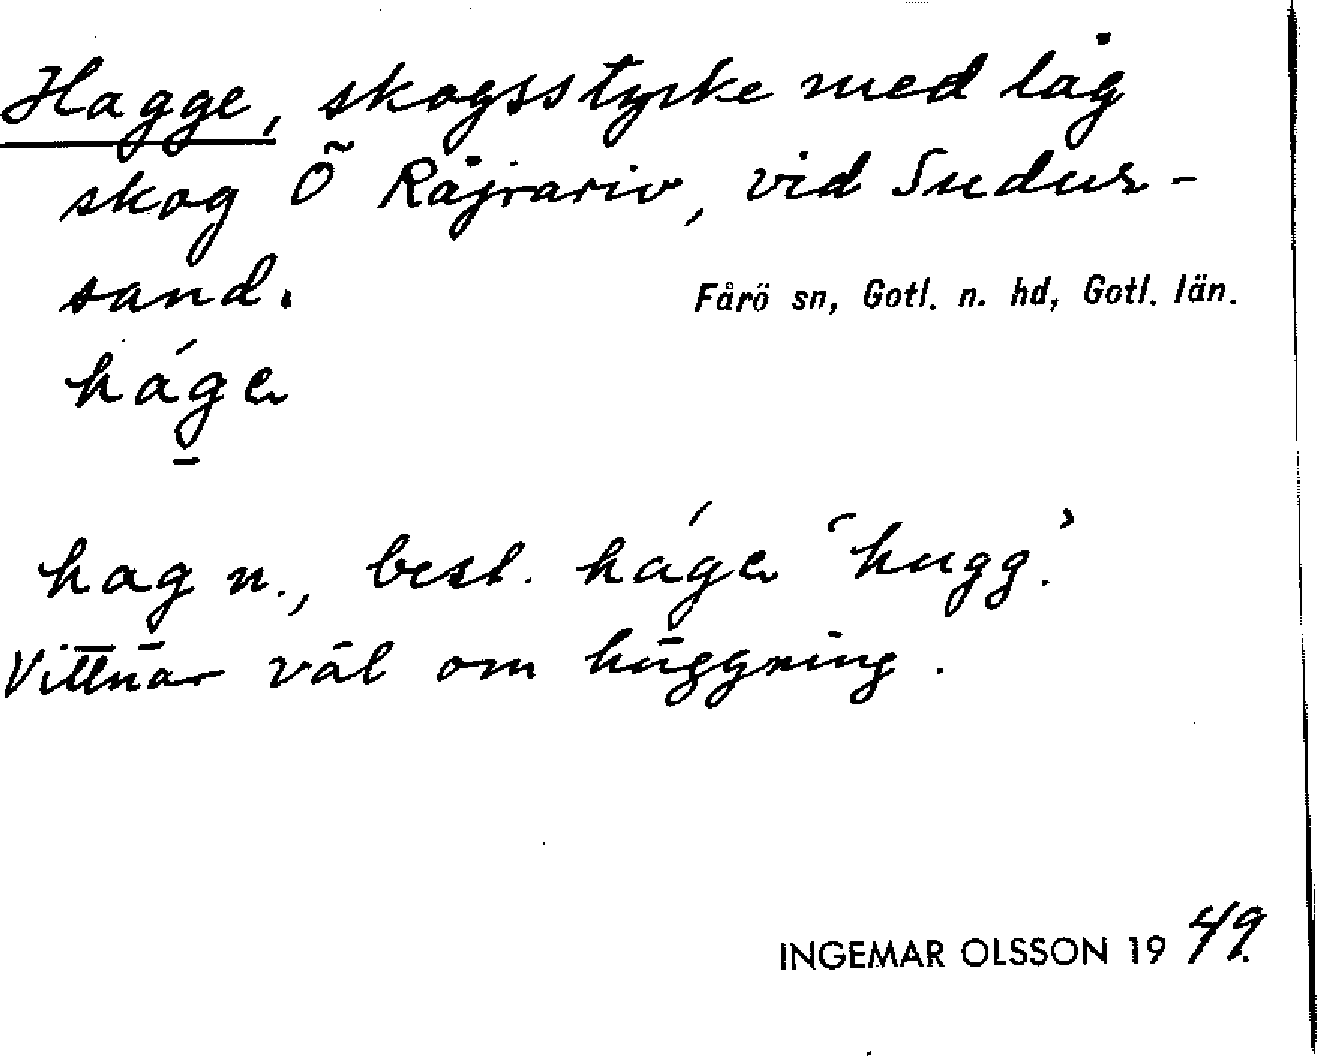 Hagge, skogsstycke med låg
skog Ö Räjrariv, vid Sudur-
sand.
Fårö sn, Gotl. n. hd, Gotl. län.
háge
hag n., best. háge 'hugg.'
Vittnar väl om huggning.
INGEMAR OLSSON 1949.